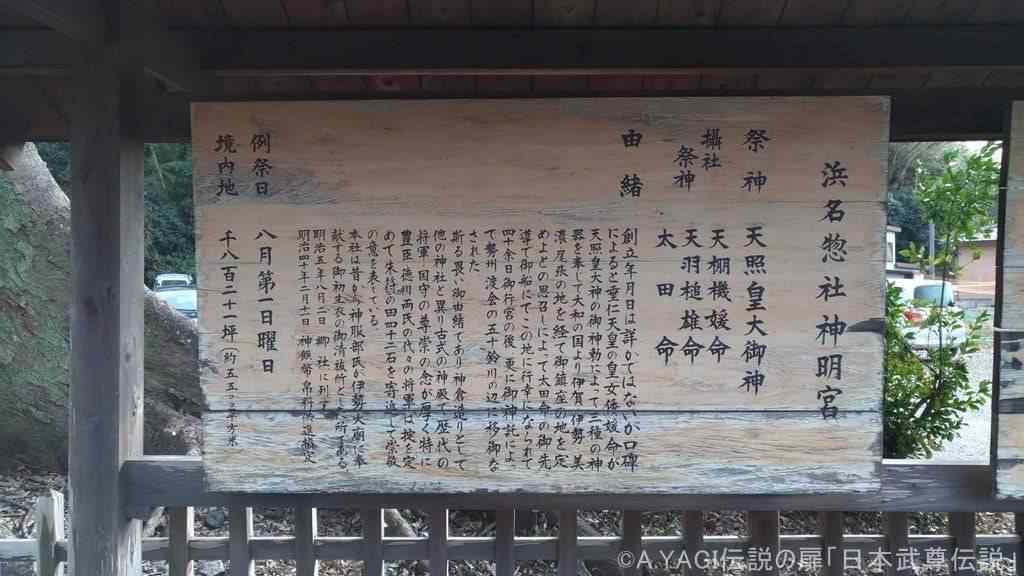 浜名惣社神明宮
祭神 天照皇大御神
攝社
祭神 天棚機媛命
天羽槌雄命
太田命
由緒 創立年月日は詳かではないが口碑
によると垂仁天皇の皇女倭媛命が
天照皇大神の御神勅によって三種の神
器を奉じて大和の国より伊賀 伊勢、美
濃、尾張の地を経て御鎮座の地を定
めよとの思召しによって太田命の御先
導で御船にてこの地に行幸になられて
四十余日御行宮の後、更に御神託によ
て勢州渡会の五十鈴川の辺に移御な
された
斯る畏い御由緒であり神倉造りとして
他の神社と異り古式の神殿で歴代の
将軍、国守の尊崇の念が厚く特に
豊臣、徳川両氏の代々の将軍は掟を定
めて朱待の田四十二石を寄進して崇敬
の意を表している。
本社は昔から神服部氏が伊勢大廟に奉
献する御初生衣の御消祓所でもある。
明治五年八月二日 郷社に列す
明治四十年二月十一日 神饌幣帛料供進
例祭日 八月第一日曜日
境内地 千八百二十一坪
©A.YAGI伝説の扉「日本武尊伝説」